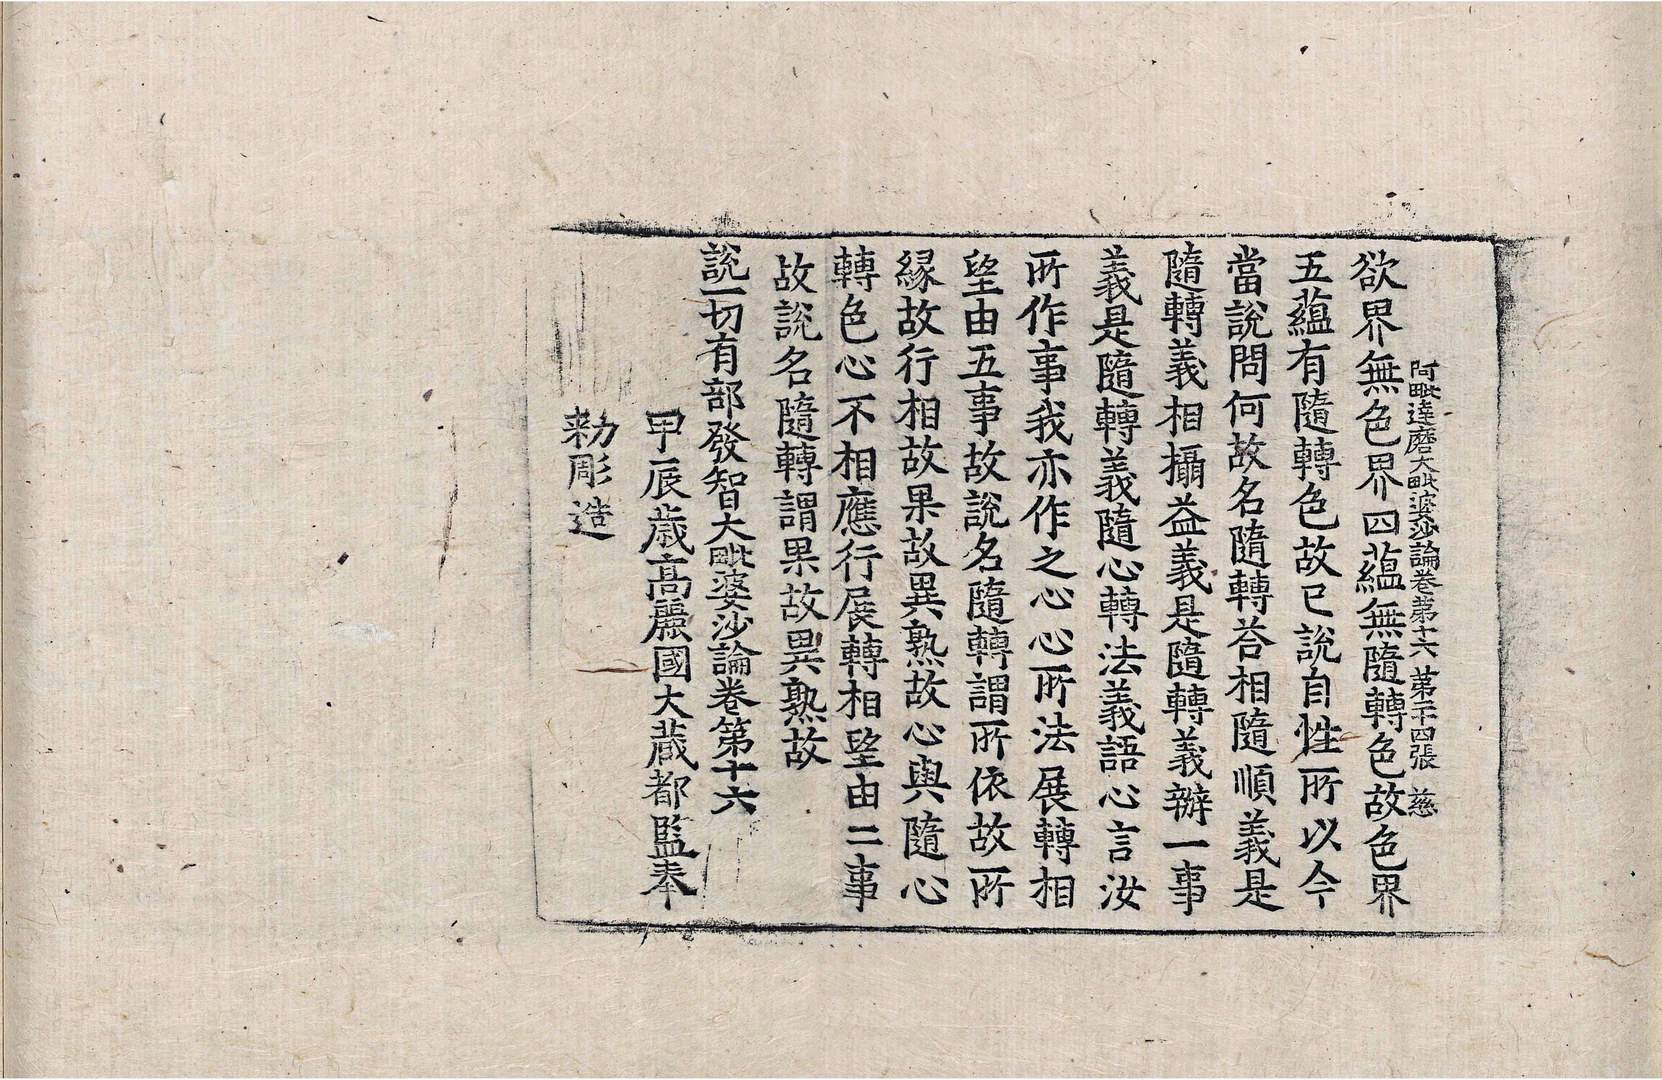 阿毗達磨大毗婆沙論卷第十六 第二十四張 慈
欲界無色界四蘊無隨轉色故色界
五蘊有隨轉色故已說自性所以今
當說問何故名隨轉荅相隨順義是
隨轉義相攝益義是隨轉義辦一事
義是隨轉義隨心轉法義語心言汝
所作事我亦作之心心所法展轉相
望由五事故說名隨轉謂所依故所
緣故行相故果故異熟故心與隨心
轉色心不相應行展轉相望由二事
故說名隨轉謂果故異熟故
說一切有部發智大毗婆沙論卷第十六
甲辰歲高麗國大藏都監奉
勑彫造